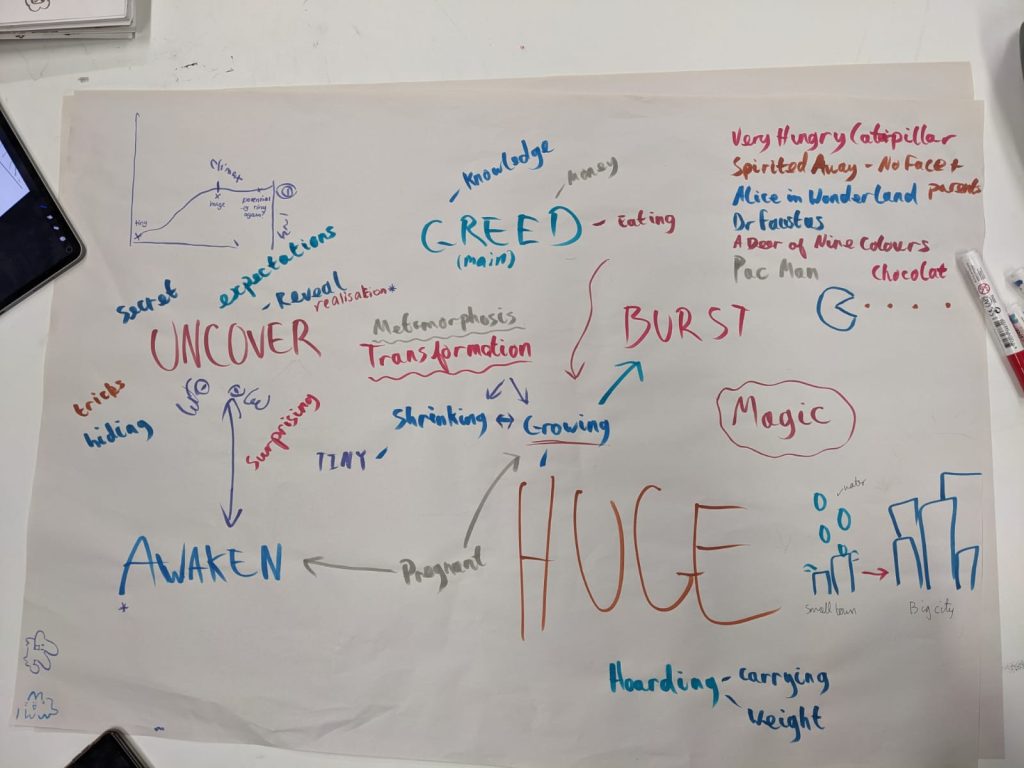 tiny
huge
potential
again?
Knowledge
Money
GREED
(main)
- Eating
Very Hungry Catipillar
Spirited Away - No Face +
parents
Alice in Wonderland
Dr Faustas
A Deer of Nine Colours
Pac Man
Chocolat
Secret
expectations
- Reveal
realisation*
UNCOVER
tricks
hiding
surprising
Metamorphosis
Transformation
BURST
Shrinking ↔ Growing
TINY
Magic
HUGE
AWAKEN
*
Pregnant
water
Small town
Big city
Hoarding - carrying
weight